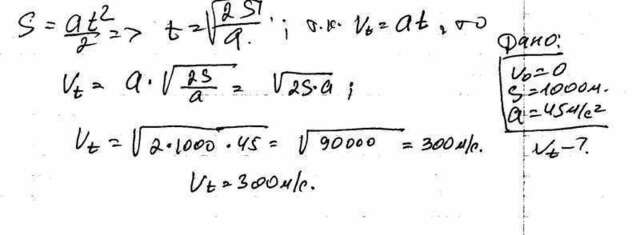 S = at²/2 => t = √(2S/a) ; т.к. Vt = at, то
Vt = a · √(2S/a) = √(2S·a) ;
Vt = √(2·1000·45) = √90000 = 300м/с.
Vt = 300м/с.
Дано:
V₀ = 0
S = 1000м.
a = 45м/с²
Vt - ?